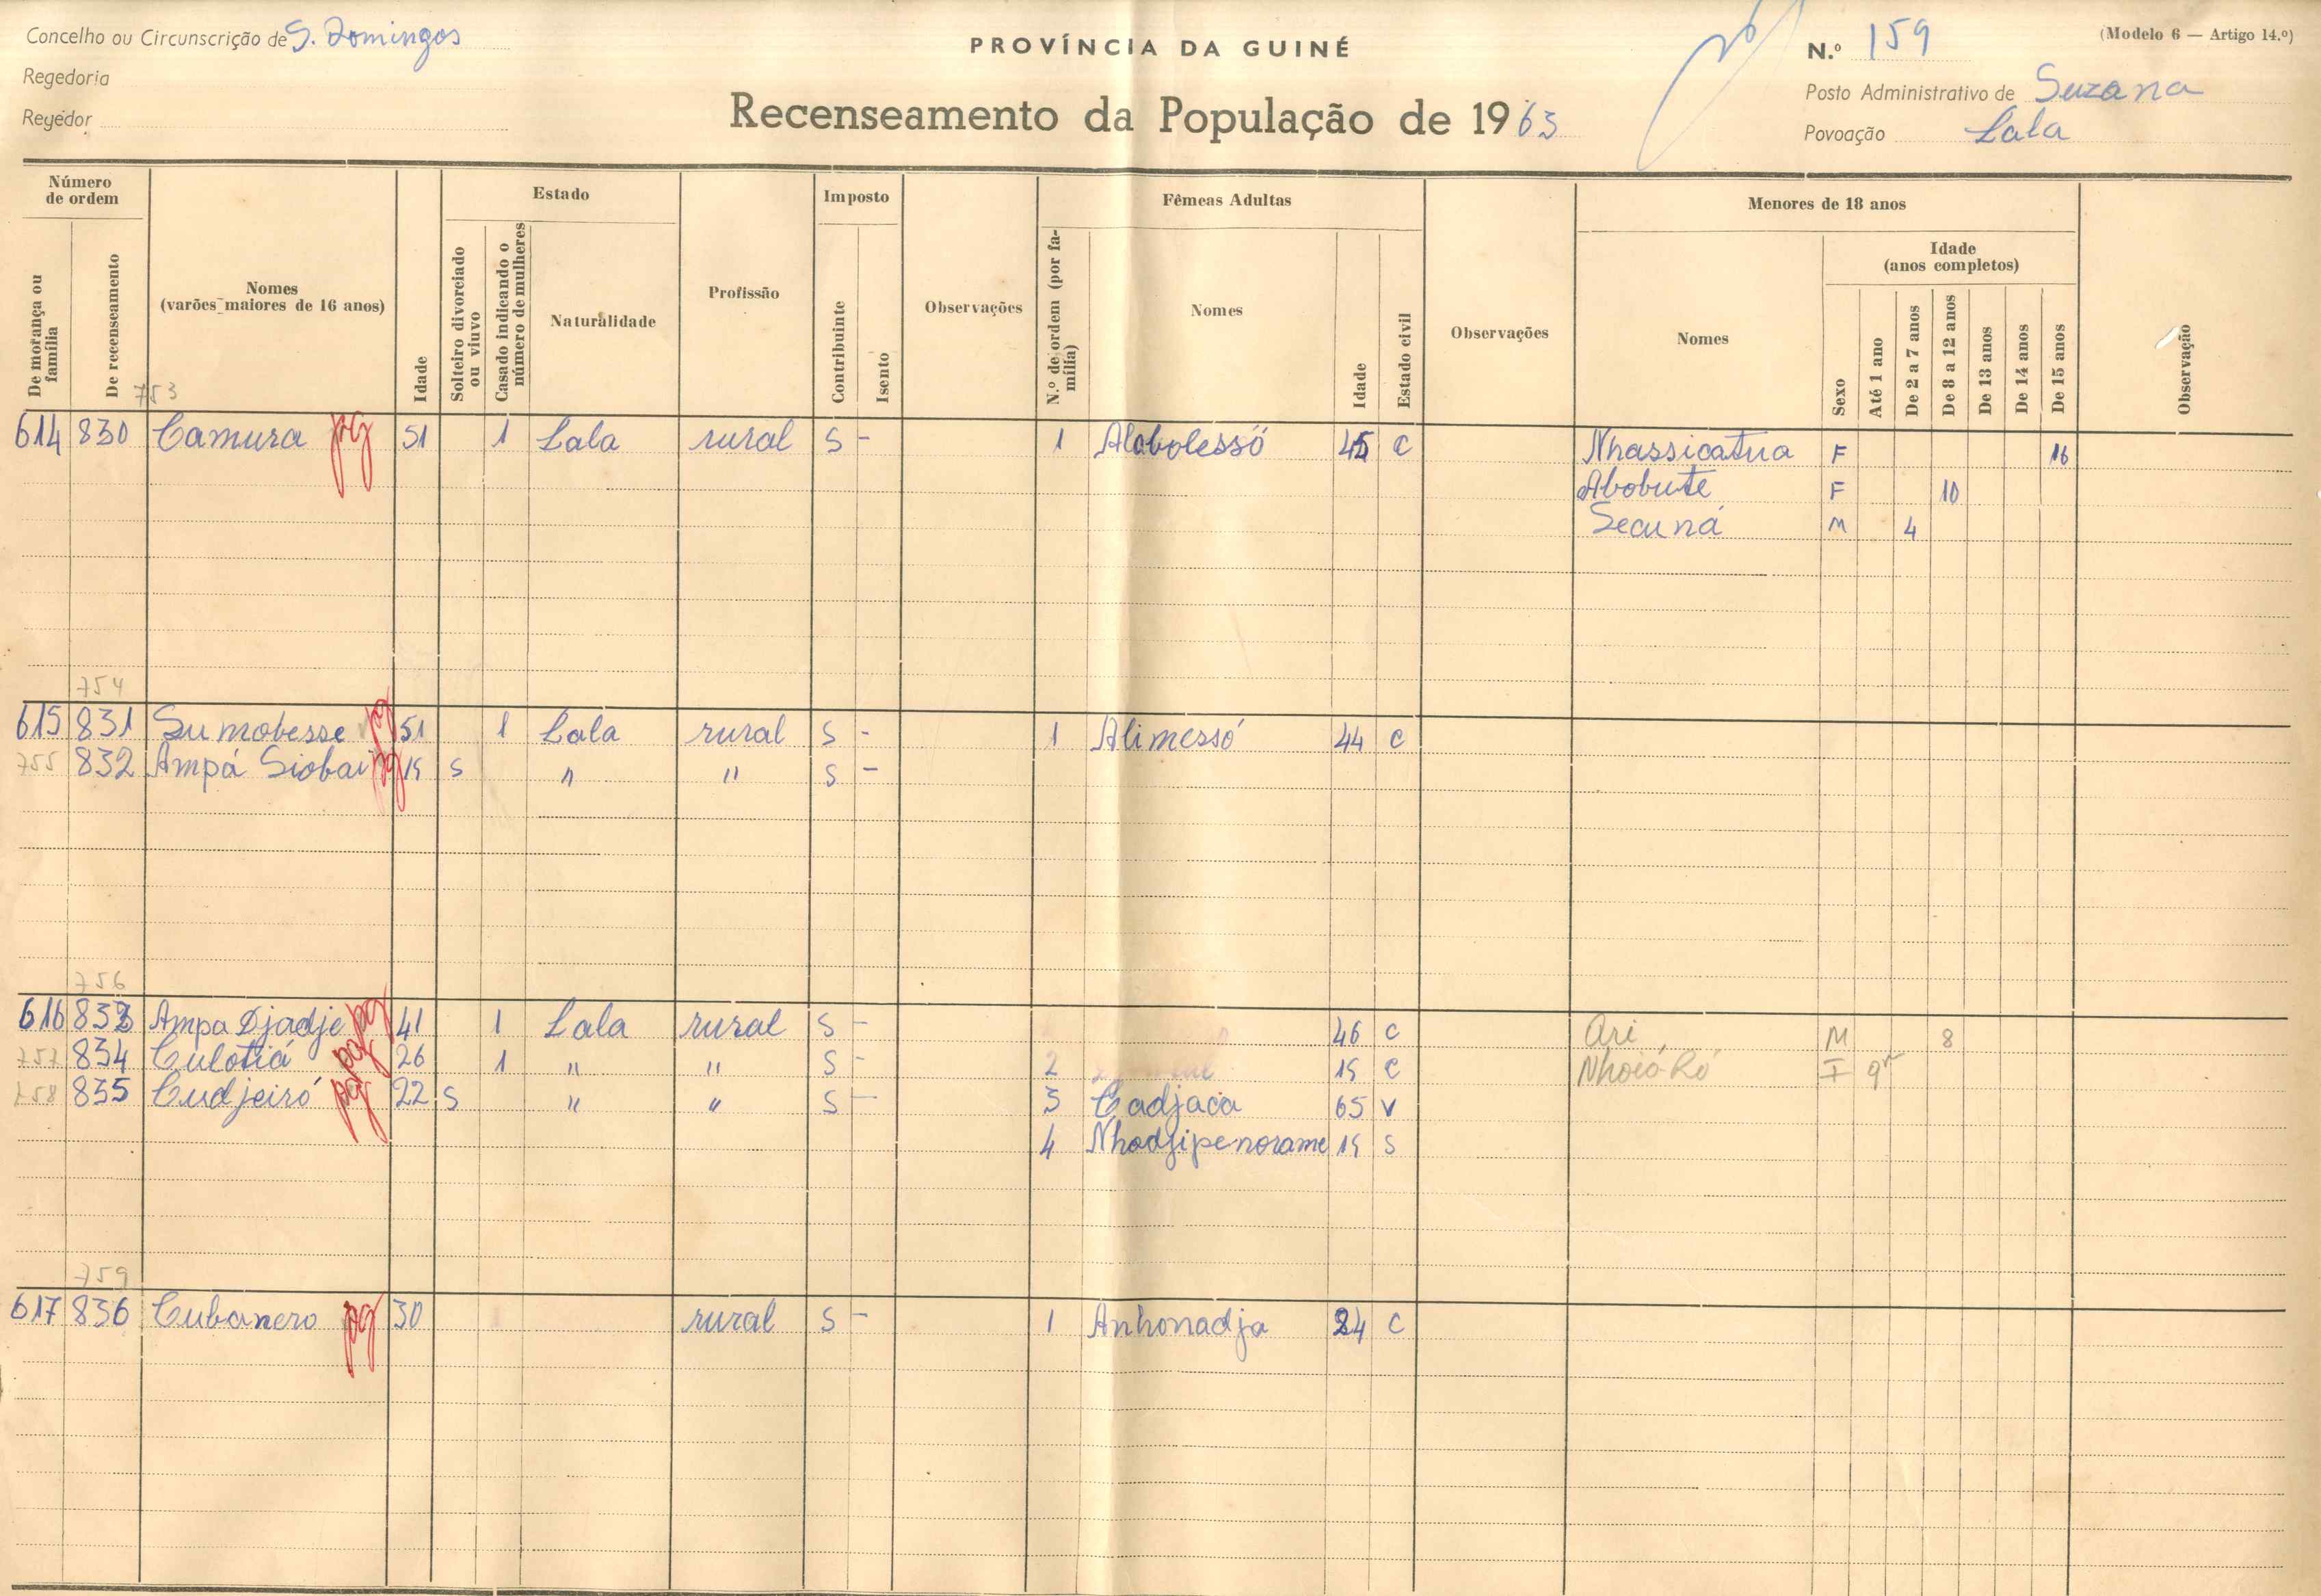 Concelho ou Circunscrição de S. Domingos
PROVÍNCIA DA GUINÉ
N.º 159
(Modelo 6 — Artigo 14.º)
Regedoria
Posto Administrativo de Suzana
Regedor
Recenseamento da População de 1963
Povoação Lala
Número de ordem
De morança ou família
De recenseamento
Nomes
(varões maiores de 16 anos)
Idade
Estado
Solteiro divorciado ou viuvo
Casado indicando o número de mulheres
Naturalidade
Profissão
Imposto
Contribuinte
Isento
Observações
Fêmeas Adultas
N.º de ordem (por família)
Nomes
Idade
Estado civil
Observações
Menores de 18 anos
Nomes
Sexo
Idade
(anos completos)
Até 1 ano
De 2 a 7 anos
De 8 a 12 anos
De 13 anos
De 14 anos
De 15 anos
Observação
753
614 830 Camura pg 51 1 Lala rural S - 1 Alabolessó 45 C Nhassicatua F 16
Abobute F 10
Secuná M 4
754
615 831 Sumobesse pg 51 1 Lala rural S - 1 Alimessó 44 C
755 832 Ampá Siobai pg 19 S " " S -
756
616 833 Ampa Djadje pg 41 1 Lala rural S - 46 C Ari M 8
757 834 Culotiá pg 26 1 " " S - 2 19 C Nhoió Ró F 9m
758 835 Cudjeiró pg 22 S " " S - 3 Cadjaca 65 V
4 Nhadjipenorame 19 S
759
617 836 Cubanero pg 30 rural S - 1 Anhonadja 24 C